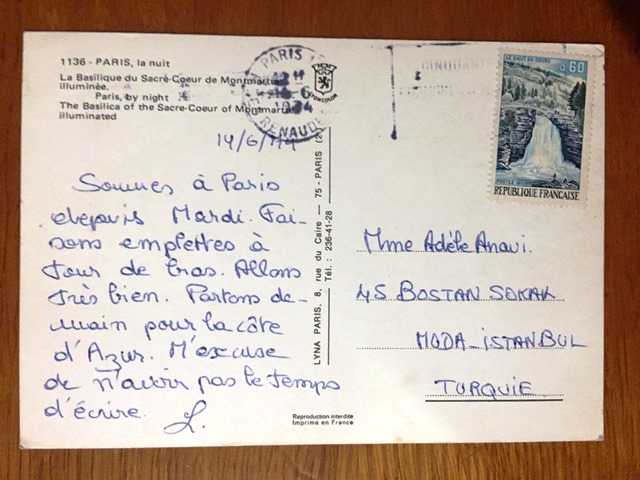 1136 - PARIS, la nuit
La Basilique du Sacré-Coeur de Montmartre
illuminée.
Paris, by night
The Basilica of the Sacre-Coeur of Montmartre
illuminated
PARIS
12 H
14-6
1974
RENAUDES
CINQUANT
LE SAUT DU DOUBS
0,60
POSTES
REPUBLIQUE FRANÇAISE
14/6/74
Sommes à Paris
depuis Mardi. Fai-
sons emplettes à
tour de bras. Allons
très bien. Partons de-
main pour la côte
d'Azur. M'excuse
de n'avoir pas le temps
d'écrire. L.
LYNA PARIS, 8, rue du Caire — 75 - PARIS (2
Tél. : 236-41-28
Mme Adèle Anavi.
45 BOSTAN SOKAK
MODA-ISTANBUL
TURQUIE.
Reproduction interdite
Imprimé en France